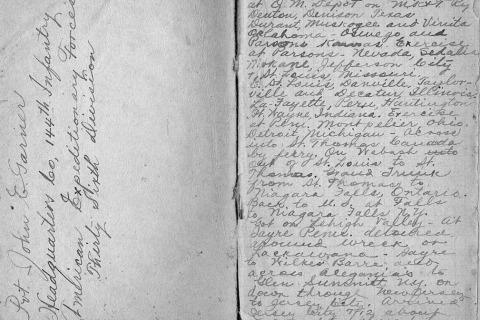 Pvt. John E Garner
Headquarters Co, 144th Infantry
American Expeditionary Forces
Thirty Sixth Division
at Q.M. Depot on MK&T Ry
Denton, Denison Texas
Durant, Muskogee and Vinita
Oklahoma - Oswego and
Parsons Kansas. Exercise
at Parsons - Nevada, Sedalia
Mokane, Jefferson City
& St Louis Missouri.
E. St Louis, Danville, Taylor-
ville and Decatur, Illinois.
La-Fayette, Peru, Huntington
Ft. Wayne, Indiana. Exercise
at Peru. Montpelier, Ohio.
Detroit, Michigan - Across
into St. Thomas Canada
by ferry. On Wabash into
out of St. Louis to St.
Thomas. Grand Trunk
from St. Thomas to
Niagara Falls, Ontario.
Back to U.S. at Falls
to Niagara Falls N.Y.
Got on Lehigh Valley - At
Sayre Penn. detoured
around wreck on
Lackawana - Sayre
to Wilkes Barre,
across Aleganies to
Glen Summitt, N.Y. on
down through New Jersey
to Jersey City. Arrived
Jersey City 7/12 about